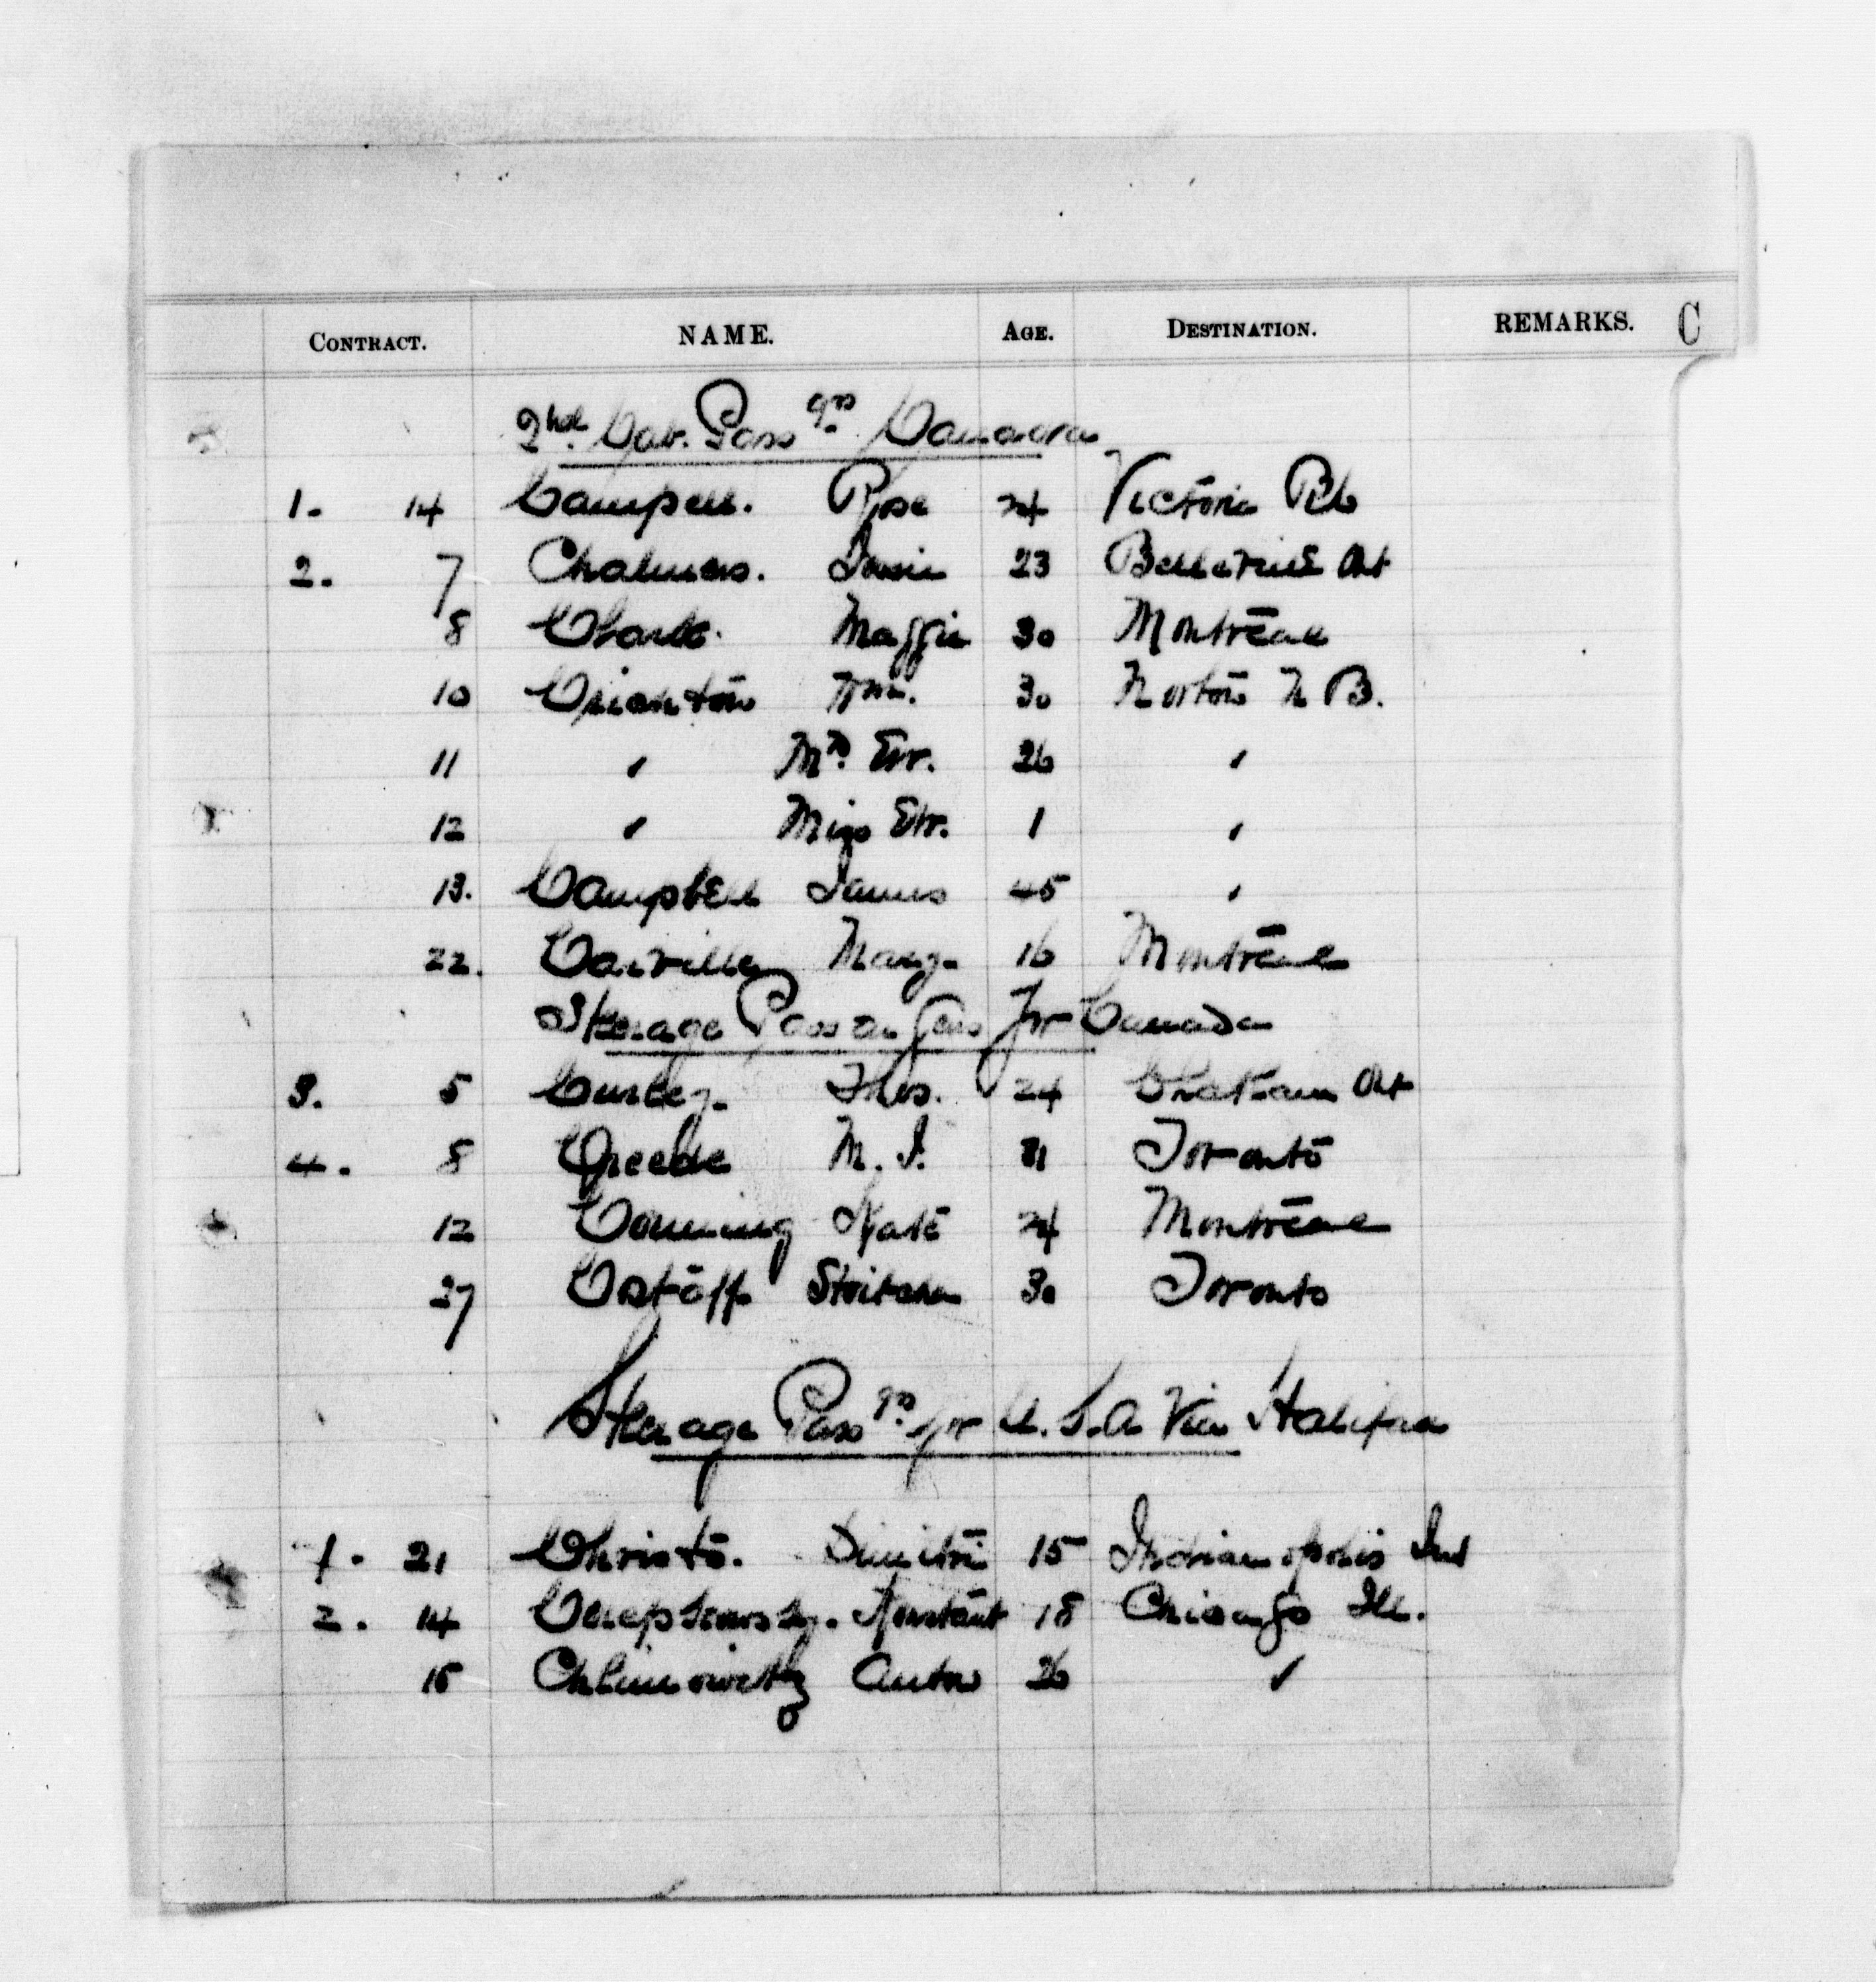 CONTRACT. NAME. AGE. DESTINATION. REMARKS. C
2nd. Cab. Passgrs Canada
1. 14 Campell. Rose 24 Victoria BC
2. 7 Chalmers. 23 Belleville Ont
8 Clark. Maggie 30 Montreal
10 Crichton Wm. 30 Norton N B.
11 " Mrs. " 26 "
12 " Miss " 1 "
13. Campbell James 45 "
22. Marg. 16 Montreal
Steerage Passengers for Canada
3. 5 Curley. Thos. 24 Chatham Ont
4. 8 M. J. 31 Toronto
12 Conning Kate 24 Montreal
27 Costoff 30 Toronto
Steerage Passgrs for U.S.A Via Halifax
1. 21 Christo. Dimitri 15 Indianapolis Ind
2. 14 Konstant 18 Chicago Ill.
15 Chlimowitz Anton 26 "